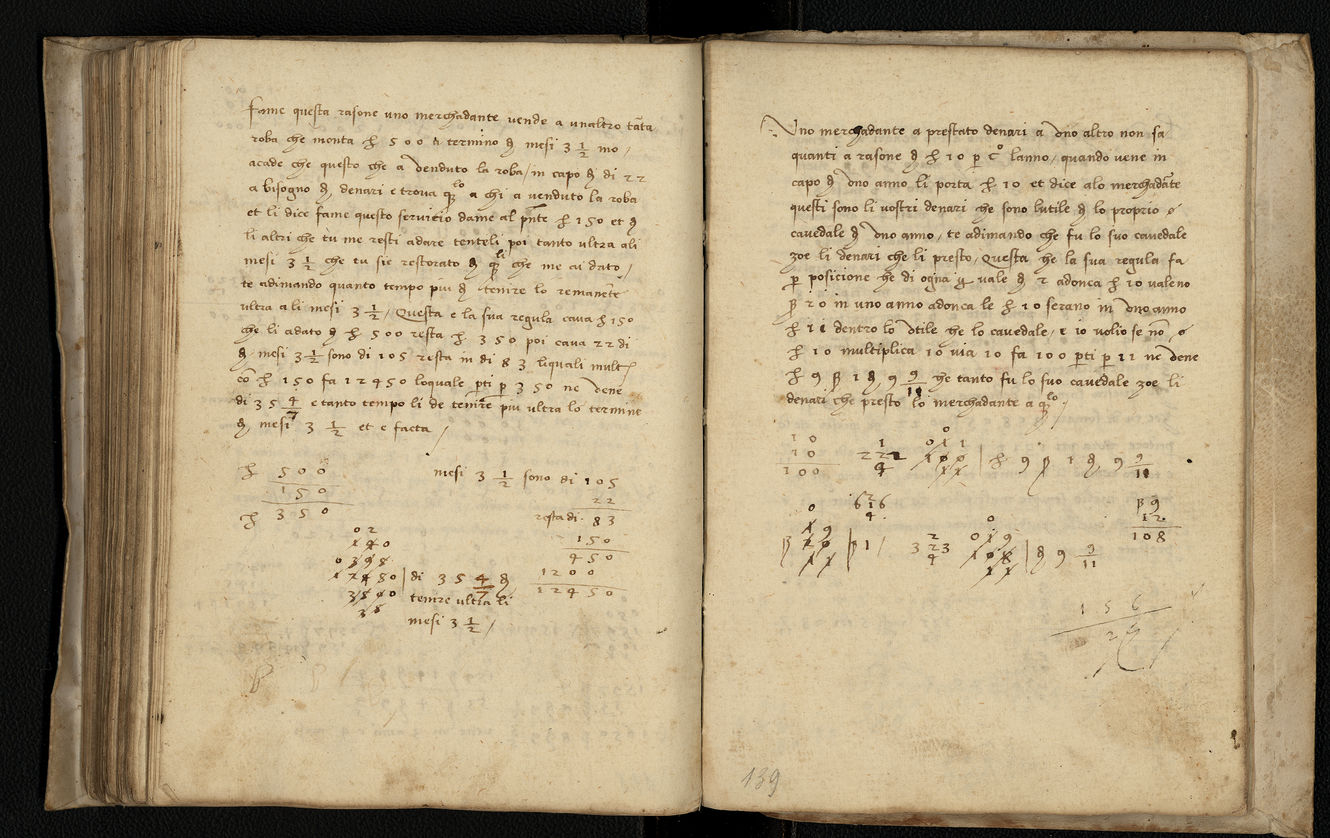 Fame questa rasone uno merchadante vende a unaltro tata
roba che monta ħ 500 a termino ꝺ mesi 3 1/2 mo /
acade che questo che a venduto la roba / in capo ꝺ di 22
a bisogno ꝺ denari e trova qlo a chi a venduto la roba
et li dice fame questo servitio dame al pnte ħ 150 et ꝺ
li altri che tu me resti adare tenteli poi tanto ultra ali
mesi 3 1/2 che tu sie restorato ꝺ qli che me ai dato /
te adimando quanto tempo piu ꝺ tenire lo remanete
ultra ali mesi 3 1/2 / Questa e la sua regula cava ħ 150
che li adato ꝺ ħ 500 resta ħ 350 poi cava 22 di
ꝺ mesi 3 1/2 sono di 105 resta in di 83 liquali mult
co ħ 150 fa 12450 loquale pti p 350 ne dene
di 35 4/7 e tanto tempo li de tenire piu ultra lo termine
ꝺ mesi 3 1/2 et e facta /
ħ 500
150
ħ 350
mesi 3 1/2 sono di 105
22
resta di 83
150
450
1200
12450
02
140
0395
12450 | di 35 4/7 ꝺ
3500 tenire ultra li
35 mesi 3 1/2 /
Uno merchadante a prestato denari a uno altro non sa
quanti a rasone ꝺ ħ 10 p co lanno / quando vene in
capo ꝺ uno anno li porta ħ 10 et dice alo merchadate
questi sono li vostri denari che sono lutile ꝺ lo proprio e
cavedale ꝺ uno anno / te adimando che fu lo suo cavedale
zoe li denari che li presto / Questa he la sua regula fa
p posicione he di ogna vale ꝺ 2 adonca ħ 10 valeno
ꝑ 20 in uno anno adonca le ħ 10 serano in uno anno
ħ 11 dentro lo utile he lo cavedale / e io volio se no e
ħ 10 multiplica 10 via 10 fa 100 pti p 11 ne vene
ħ 9 ꝑ 1 ꝺ 9 9/11 he tanto fu lo suo cavedale zoe li
denari che presto lo merchadante a qlo /
10
10
100
1
221
4
0
011
100 | ħ 9 ꝑ 1 ꝺ 9 9/11
11
626
1
4
0
19
ꝑ 20 | ꝑ 1 /
11
2
323
4
0
019
108 | ꝺ 9 9/11
11
ꝑ 9
12
108
156
139